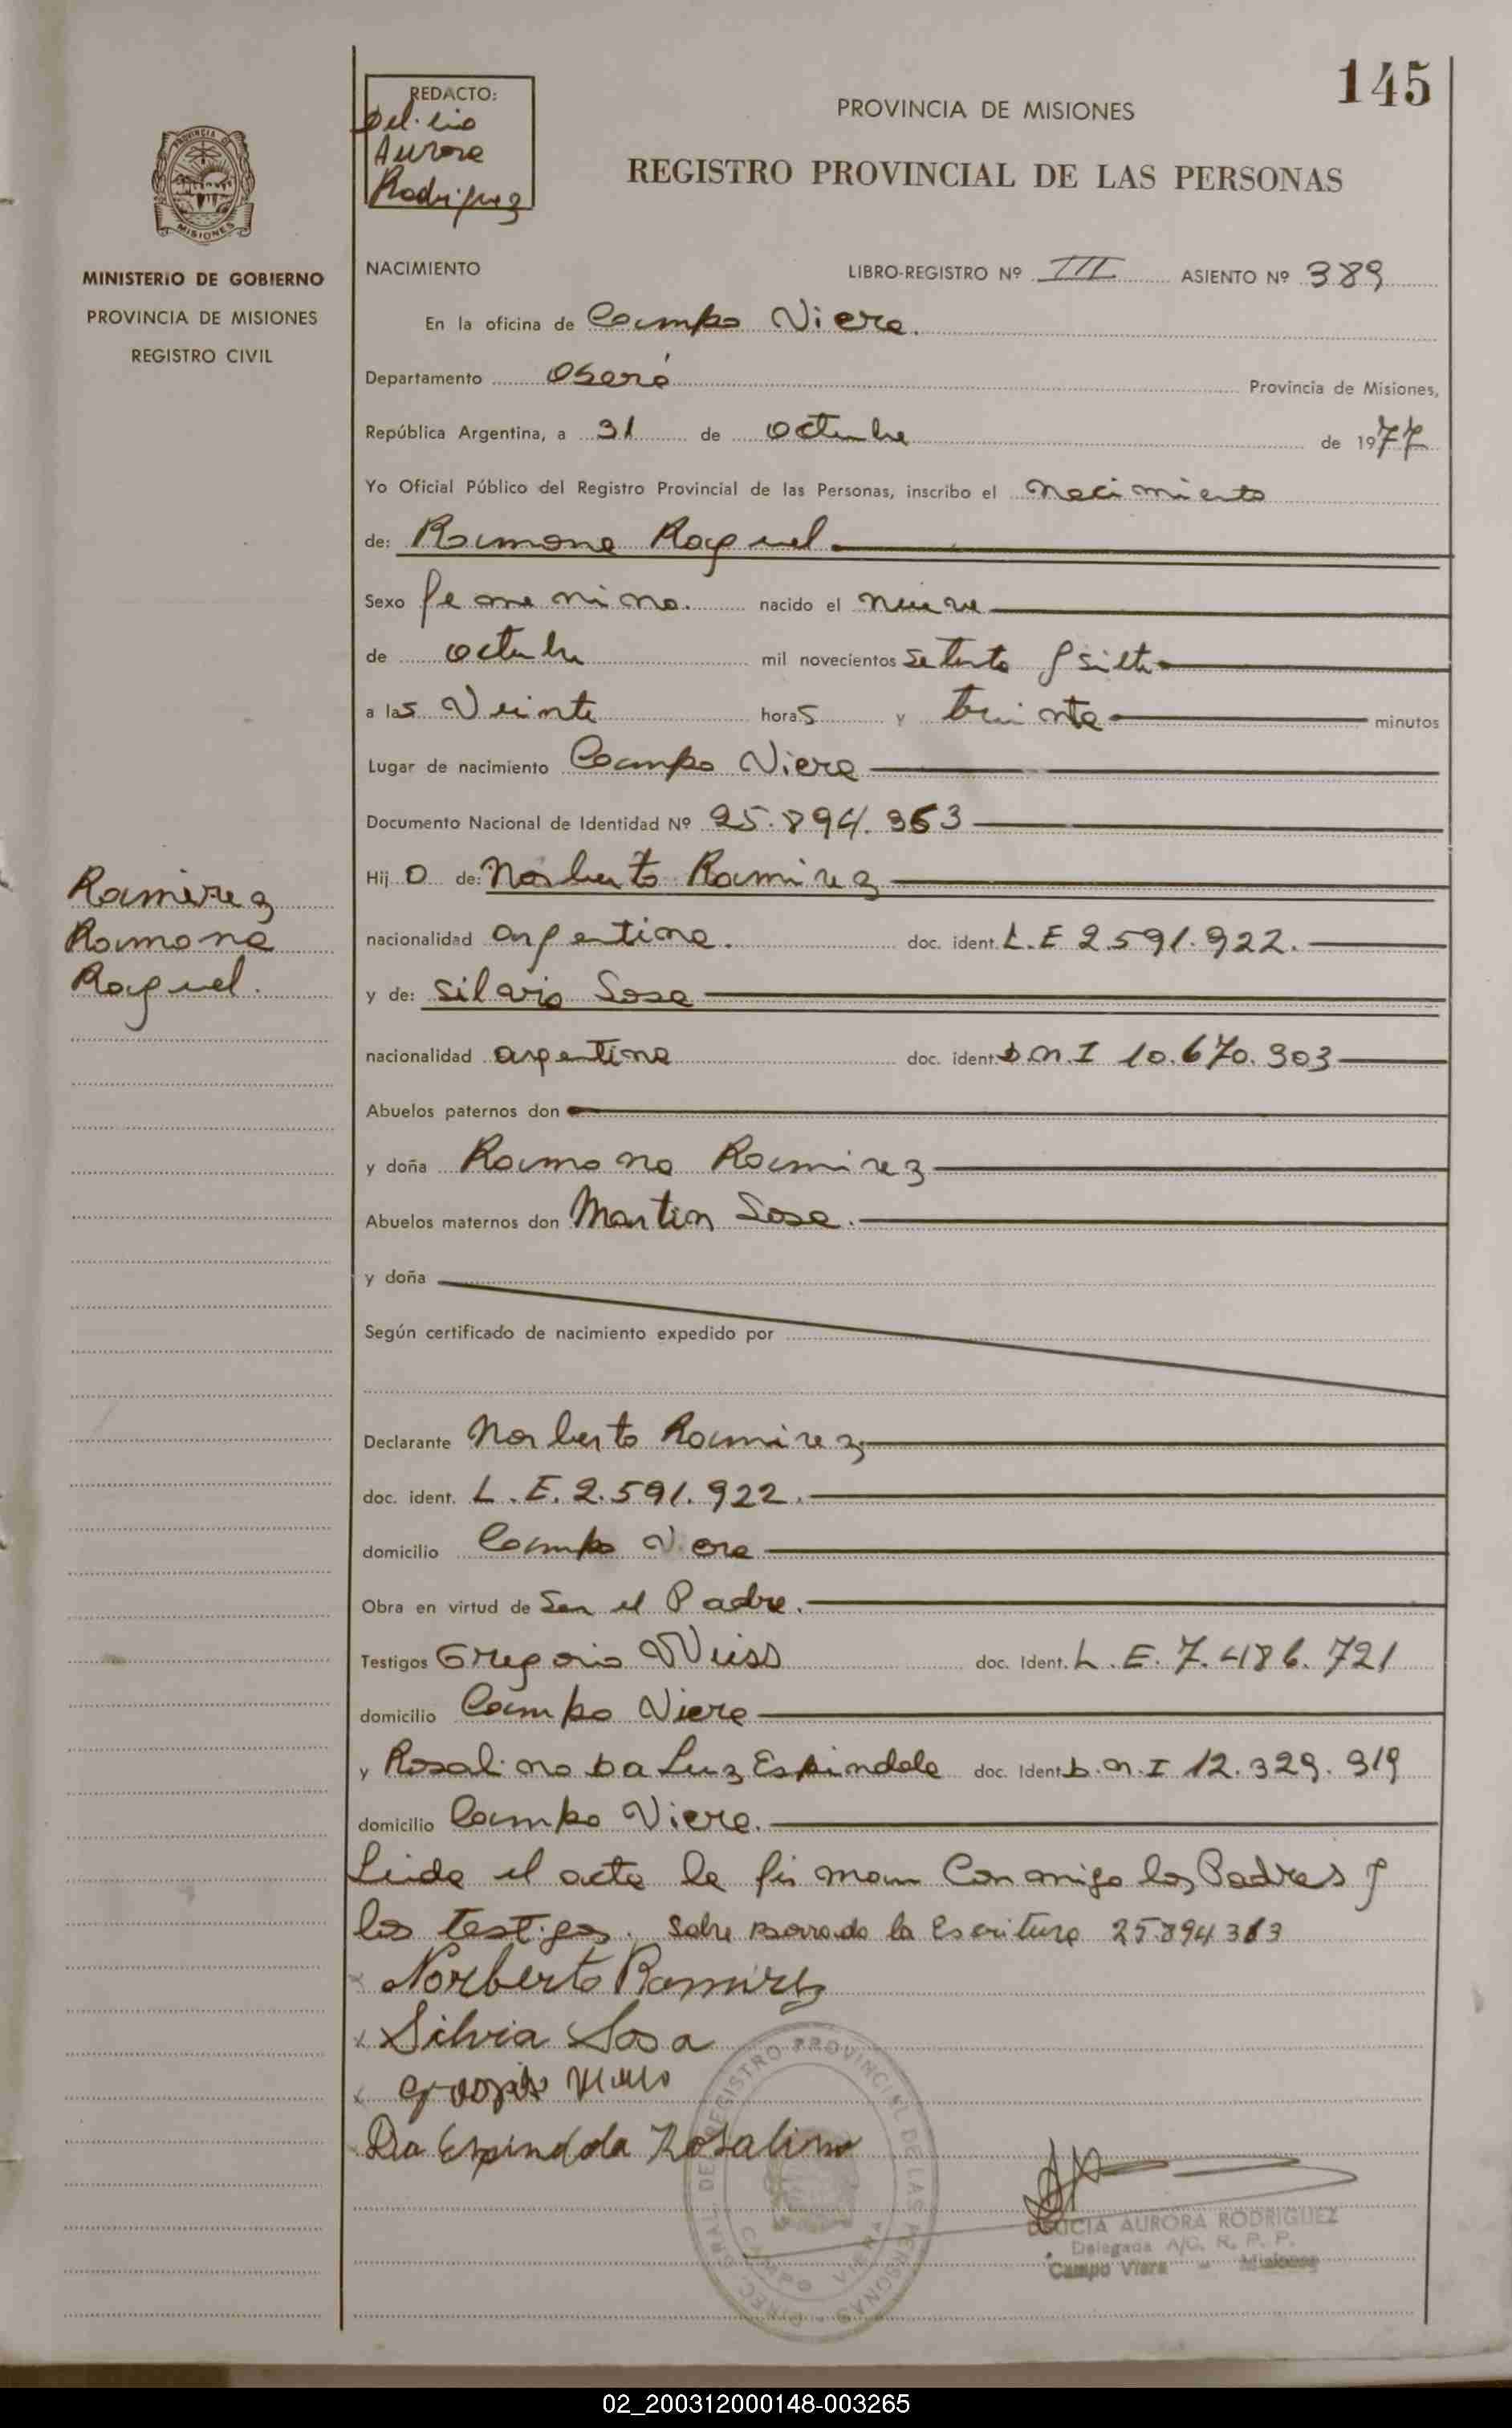 145
REDACTO:
Delicia
Aurora
Rodriguez
PROVINCIA DE MISIONES
REGISTRO PROVINCIAL DE LAS PERSONAS
PROVINCIA DE
MISIONES
MINISTERIO DE GOBIERNO
PROVINCIA DE MISIONES
REGISTRO CIVIL
NACIMIENTO LIBRO-REGISTRO Nº III ASIENTO Nº 389
En la oficina de Campo Viera.
Departamento Oberá Provincia de Misiones,
República Argentina, a 31 de octubre de 1977
Yo Oficial Público del Registro Provincial de las Personas, inscribo el nacimiento
de: Ramona Raquel
Sexo femenino. nacido el nueve
de octubre mil novecientos setenta y siete
a las Veinte horas y treinta minutos
Lugar de nacimiento Campo Viera
Documento Nacional de Identidad Nº 25.894.363
Hij O de: Norberto Ramirez
Ramirez
Ramona
Raquel.
nacionalidad argentina. doc. ident. L.E 2.591.922.
y de: Silvia Sosa
nacionalidad argentina doc. ident. D.N.I 10.670.903
Abuelos paternos don
y doña Ramona Ramirez
Abuelos maternos don Martin Sosa.
y doña
Según certificado de nacimiento expedido por
Declarante Norberto Ramirez
doc. ident. L.E. 2.591.922.
domicilio Campo Viera
Obra en virtud de Ser el Padre.
Testigos Gregorio Weiss doc. Ident. L.E. 7.486.721
domicilio Campo Viera
y Rosalino Da Luz Espindola doc. Ident D.N.I 12.329.919
domicilio Campo Viera.
Leida el acta la firman Conmigo los Padres y
los testigos. Sobre Borrado la Escritura 25.894.363
x Norberto Ramirez
x Silvia Sosa
x
Da Espindola Rosalino
DIREC. GRAL. DEL REGISTRO PROVINCIAL DE LAS PERSONAS
CAMPO VIERA
DELICIA AURORA RODRIGUEZ
Delegada A/C. R. P. P.
Campo Viera - Misiones
02_200312000148-003265